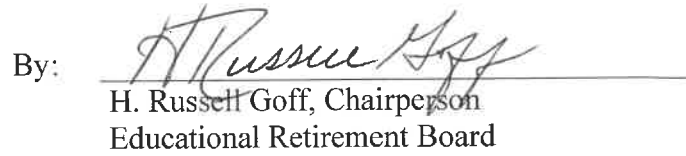 By: H Russell Goff
H. Russell Goff, Chairperson
Educational Retirement Board